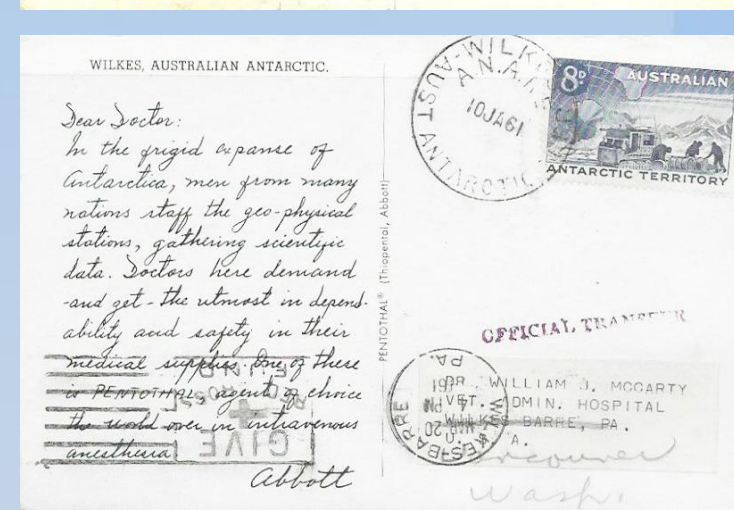 WILKES, AUSTRALIAN ANTARCTIC.
Dear Doctor:
In the frigid expanse of
Antarctica, men from many
nations staff the geo-physical
stations, gathering scientific
data. Doctors here demand
-and get- the utmost in depend-
ability and safety in their
medical supplies. One of these
is PENTOTHAL, agent of choice
the world over in intravenous
anesthesia
Abbott
PENTOTHAL® (Thiopental, Abbott)
10JA61
AUST ANTARCTIC
8D AUSTRALIAN
ANTARCTIC TERRITORY
OFFICIAL TRANSFER
WILKES-BARRE
PA.
GIVE
WILLIAM J. MCCARTY
HOSPITAL
WILKES BARRE, PA.
Wash.